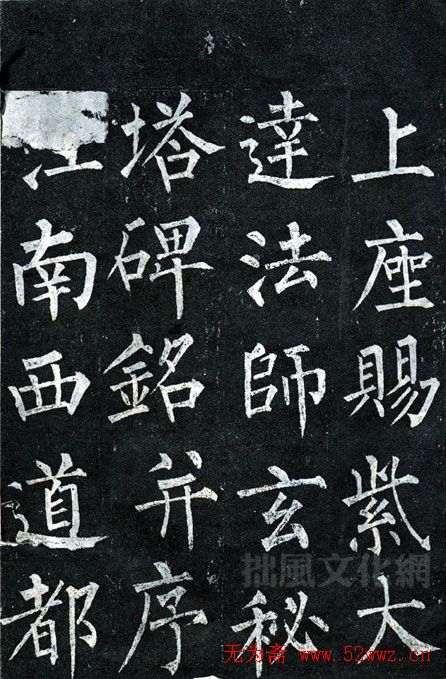 上座賜紫大
達法師玄秘
塔碑銘并序
江南西道都
拙風文化網
无为斋 www.52wwz.cn